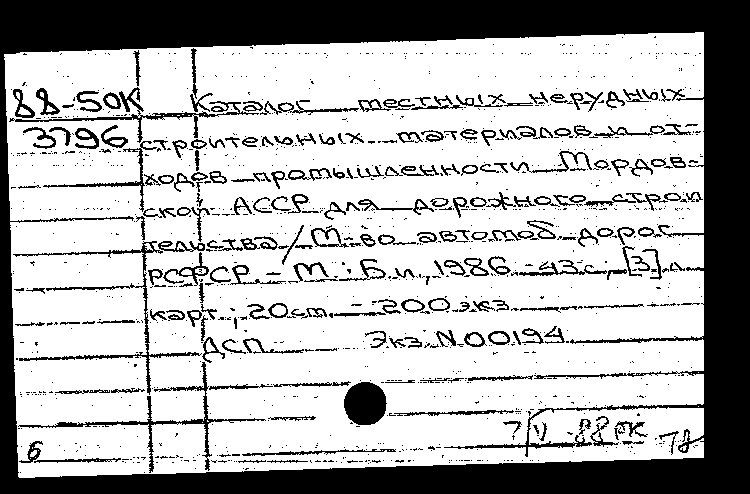 88-50К Каталог местных нерудных
3796 строительных материалов и от-
ходов промышленности Мордов-
ской АССР для дорожного строи
тельства / М-во автомоб. дорог
РСФСР. - М.: Б.и., 1986. - 43 с.; [3] л.
карт.; 20 см. - 200 экз.
ДСП. Экз. N 00194
7 V -88 РК 78
6